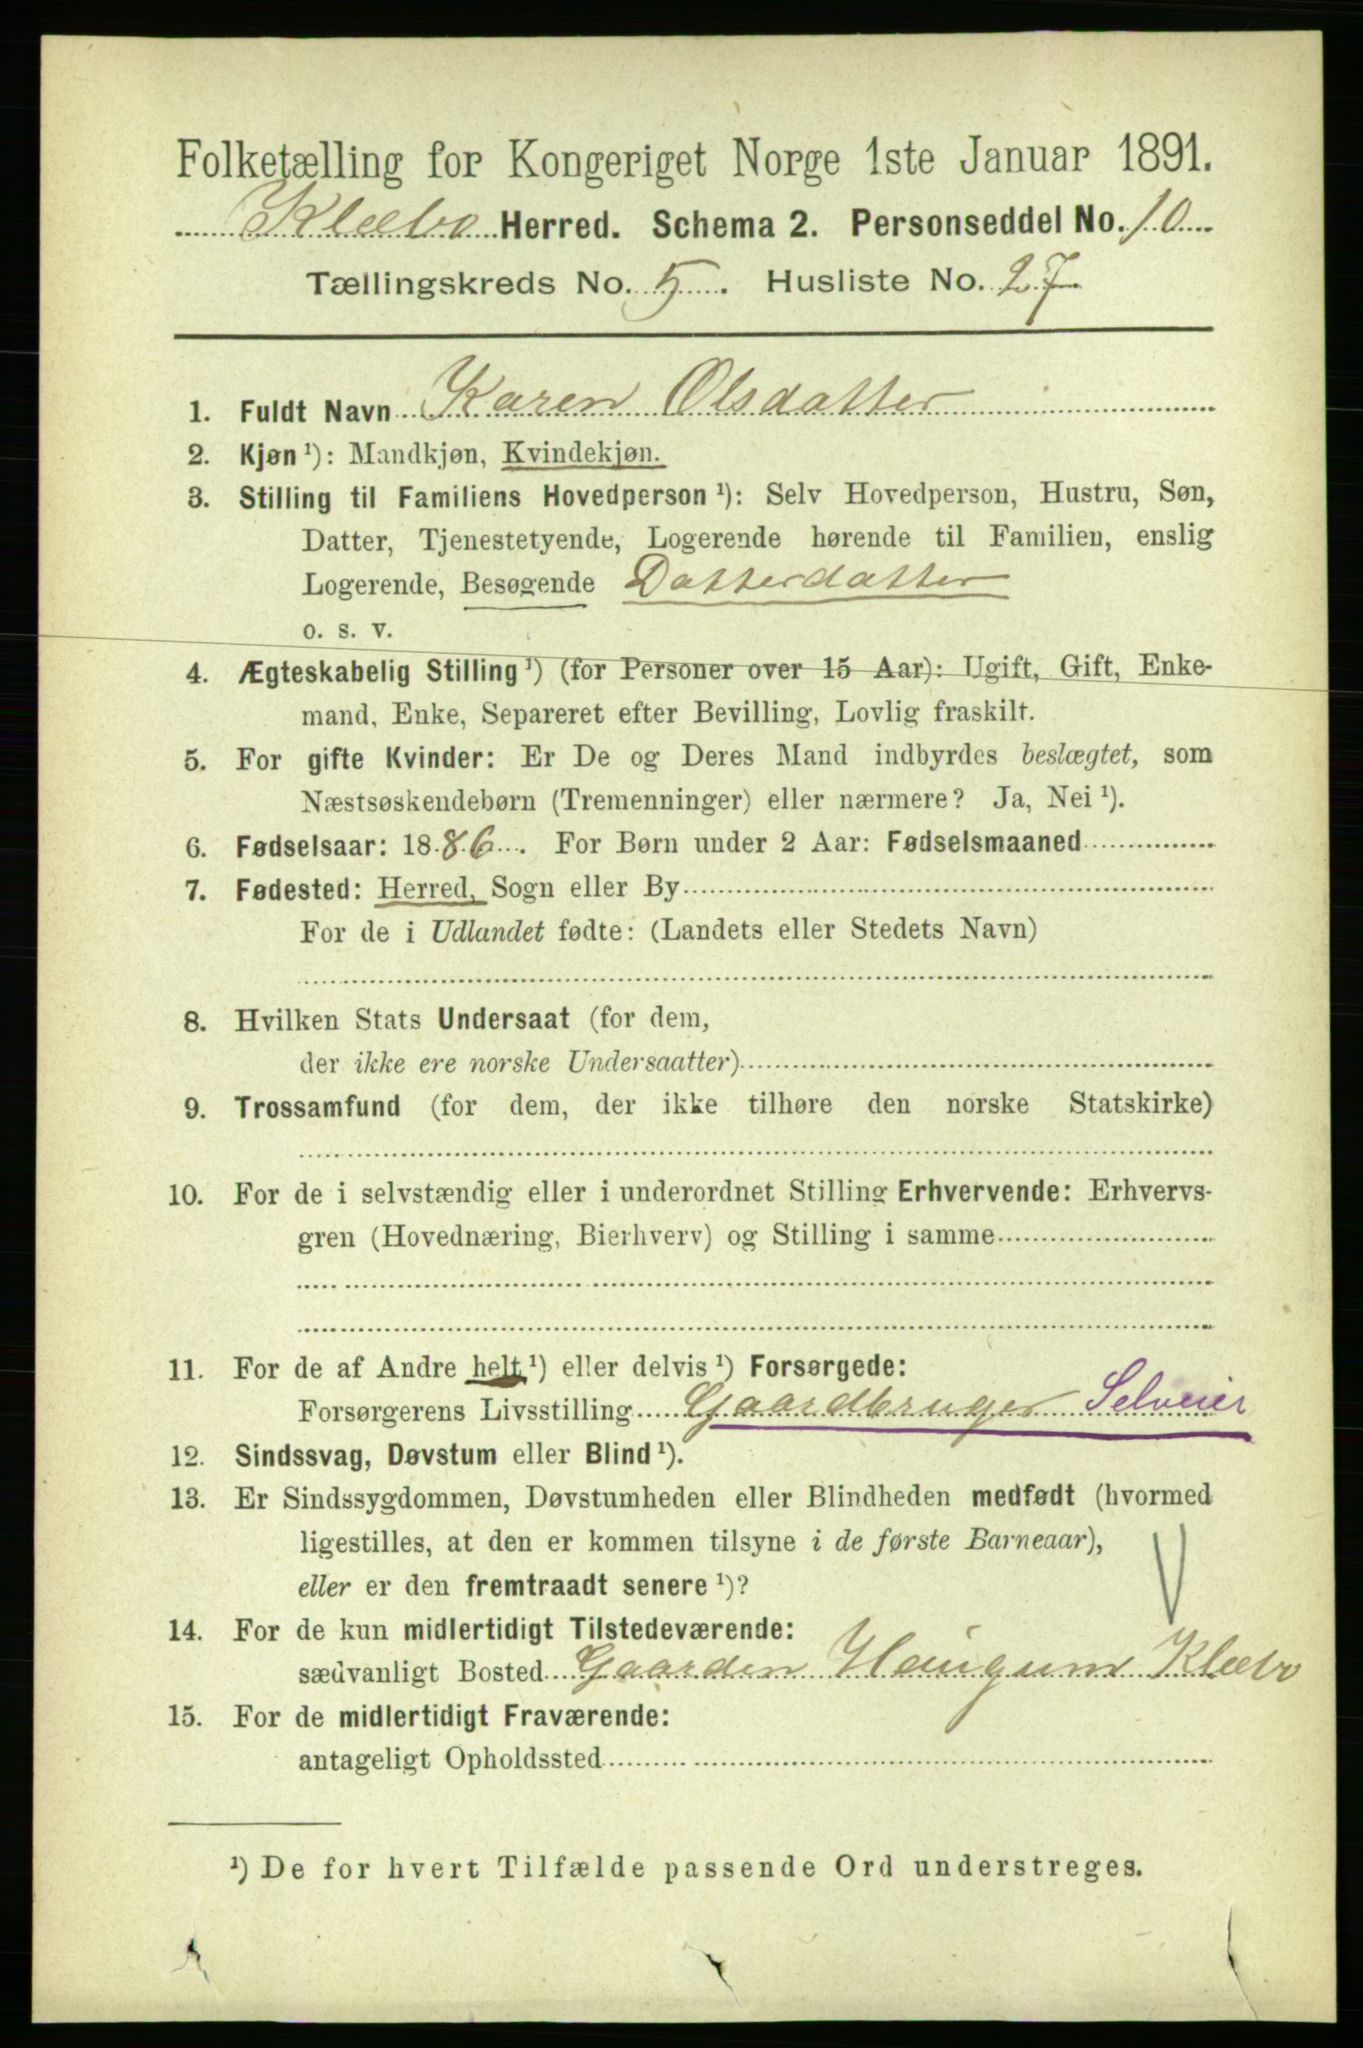 Folketælling for Kongeriget Norge 1ste Januar 1891.
Klæbo Herred. Schema 2. Personseddel No. 10
Tællingskreds No. 5. Husliste No. 27
1. Fuldt Navn Karen Olsdatter
2. Kjøn ¹): Mandkjøn, Kvindekjøn.
3. Stilling til Familiens Hovedperson ¹): Selv Hovedperson, Hustru, Søn,
Datter, Tjenestetyende, Logerende hørende til Familien, enslig
Logerende, Besøgende Datterdatter
o. s. v.
4. Ægteskabelig Stilling ¹) (for Personer over 15 Aar): Ugift, Gift, Enke-
mand, Enke, Separeret efter Bevilling, Lovlig fraskilt.
5. For gifte Kvinder: Er De og Deres Mand indbyrdes beslægtet, som
Næstsøskendebørn (Tremenninger) eller nærmere? Ja, Nei ¹).
6. Fødselsaar: 1886. For Børn under 2 Aar: Fødselsmaaned
7. Fødested: Herred, Sogn eller By
For de i Udlandet fødte: (Landets eller Stedets Navn)
8. Hvilken Stats Undersaat (for dem,
der ikke ere norske Undersaatter)
9. Trossamfund (for dem, der ikke tilhøre den norske Statskirke)
10. For de i selvstændig eller i underordnet Stilling Erhvervende: Erhvervs-
gren (Hovednæring, Bierhverv) og Stilling i samme
11. For de af Andre helt ¹) eller delvis ¹) Forsørgede:
Forsørgerens Livsstilling Gaardbruger Selveier
12. Sindssvag, Døvstum eller Blind ¹).
13. Er Sindssygdommen, Døvstumheden eller Blindheden medfødt (hvormed
ligestilles, at den er kommen tilsyne i de første Barneaar),
eller er den fremtraadt senere ¹)?
14. For de kun midlertidigt Tilstedeværende:
sædvanligt Bosted Gaarden Haugum Klæbo
15. For de midlertidigt Fraværende:
antageligt Opholdssted
¹) De for hvert Tilfælde passende Ord understreges.